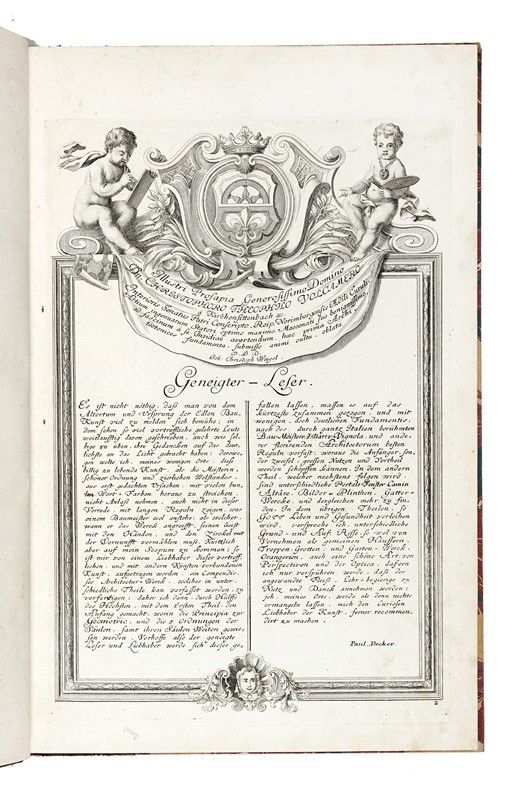 Illustri Prosapia Generosissimo Domino
Dn. CHRISTOPHORO THEOPHILO VOLCAMERO
à Kirchensittenbach &c.
Interioris Senatus Patri Conscripto, Reip. Norimbergensis Aedili Curuli,
Mecoenati suo benignissimo
ad
a se avertendum, haec prima Archi-
tectonices Fundamenta, submisso animi cultu, oblata
D. D. D.
Joh. Christoph Weigel.
Geneigter-Leser.
Es ist nicht nöthig, daß man von dem
Altertum und Ursprung der Edlen Bau-
Kunst viel zu melden sich bemühe; in
dem schon so viel vortreffliche gelehrte Leute
weitläufftig davon geschrieben, auch wie sel-
bige zu üben, ihre Gedancken auf das deut-
lichste an das Licht gebracht haben; derowe-
gen wolte ich, meines wenigen Orts, diese
billig zu lobende Kunst, als die Meisterin,
schöner Ordnung und zierlichen Wolständes,
aus erst gedachten Ursachen, mit vielen bun-
ten Wort-Farben heraus zu streichen,
nicht Anlaß nehmen, auch nicht in dieser
Vorrede, mit langen Reguln zeigen, was
einem Baumeister wol anstehe, als welcher,
wann er das Werck angreifft, seinen Geist
mit den Händen, und den Zirckel mit
der Vernunfft vermählen muß. Kürtzlich
aber auf mein Scopum zu kommen; So
ist mir von einem Liebhaber dieser vortreff-
lichen, und mit andern Künsten verbundenen
Kunst, aufgetragen worden, ein Compendio-
ses Architectur-Werck, welches in unter-
schiedliche Theile kan verfasset werden, zu
verfertigen; daher ich denn, durch Hülffe
des Höchsten, mit dem Ersten Theil, den
Anfang gemacht, worin die Principia zur
Geometrie, und die 5 Ordnungen der
Säulen, samt ihren Säulen Weiten gewie-
sen werden. Verhoffe also der geneigte
Leser und Liebhaber werde sich dieses ge-
fallen lassen, massen es auf das
kürtzeste zusammen gezogen, und mit
wenigen, doch deutlichen Fundamentis,
nach des, durch gantz Italien berühmten
Bau-Meisters J. Bar. Vignola, und ande-
rer florirenden Architectorum besten
Reguln verfast; woraus die Anfänger, son-
der zweifel, grossen Nutzen und Vortheil
werden schöpffen können. In dem andern
Theil, welcher nechstens folgen wird,
sind unterschiedliche Portale, Fenster, Camin,
Altäre, Bilder-Plinthen, Gatter-
Wercke, und dergleichen mehr zu fin-
den. In dem übrigen Theilen, so
GOTT Leben und Gesundheit verleihen
wird, verspreche ich, unterschiedliche
Grund- und Auf-Risse, so wol von
Vornehmen als gemeinen Häussern,
Treppen, Grotten, und Garten-Werck,
Orangerien, auch eine schöne Art, von
Perspectiven und der Optica; dafern
ich nur verspühren werde, daß der
angewandte Fleiß, Lehr-begierige zu
Nutz und Danck annehmen werden;
ich, meines Orts, werde als denn nichts
ermangeln lassen, mich den Curiosen
Liebhaber der Kunst, ferner recommen-
dirt zu machen.
Paul Decker.